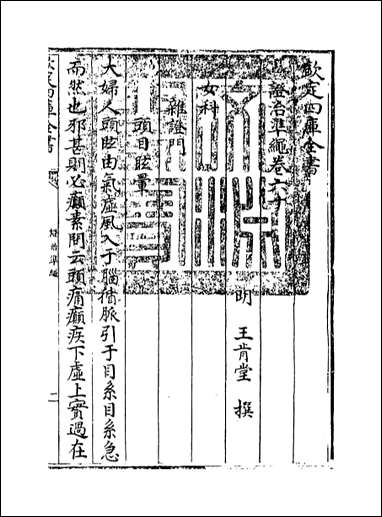 欽定四庫全書
證治準繩卷六十
明 王肯堂 撰
女科
雜證門
頭目眩暈
大婦人頭眩由氣虛風入于腦循脈引于目系目系急
而然也邪甚則必癲素問云頭痛癲疾下虛上實過在
欽定四庫全書
證治準繩